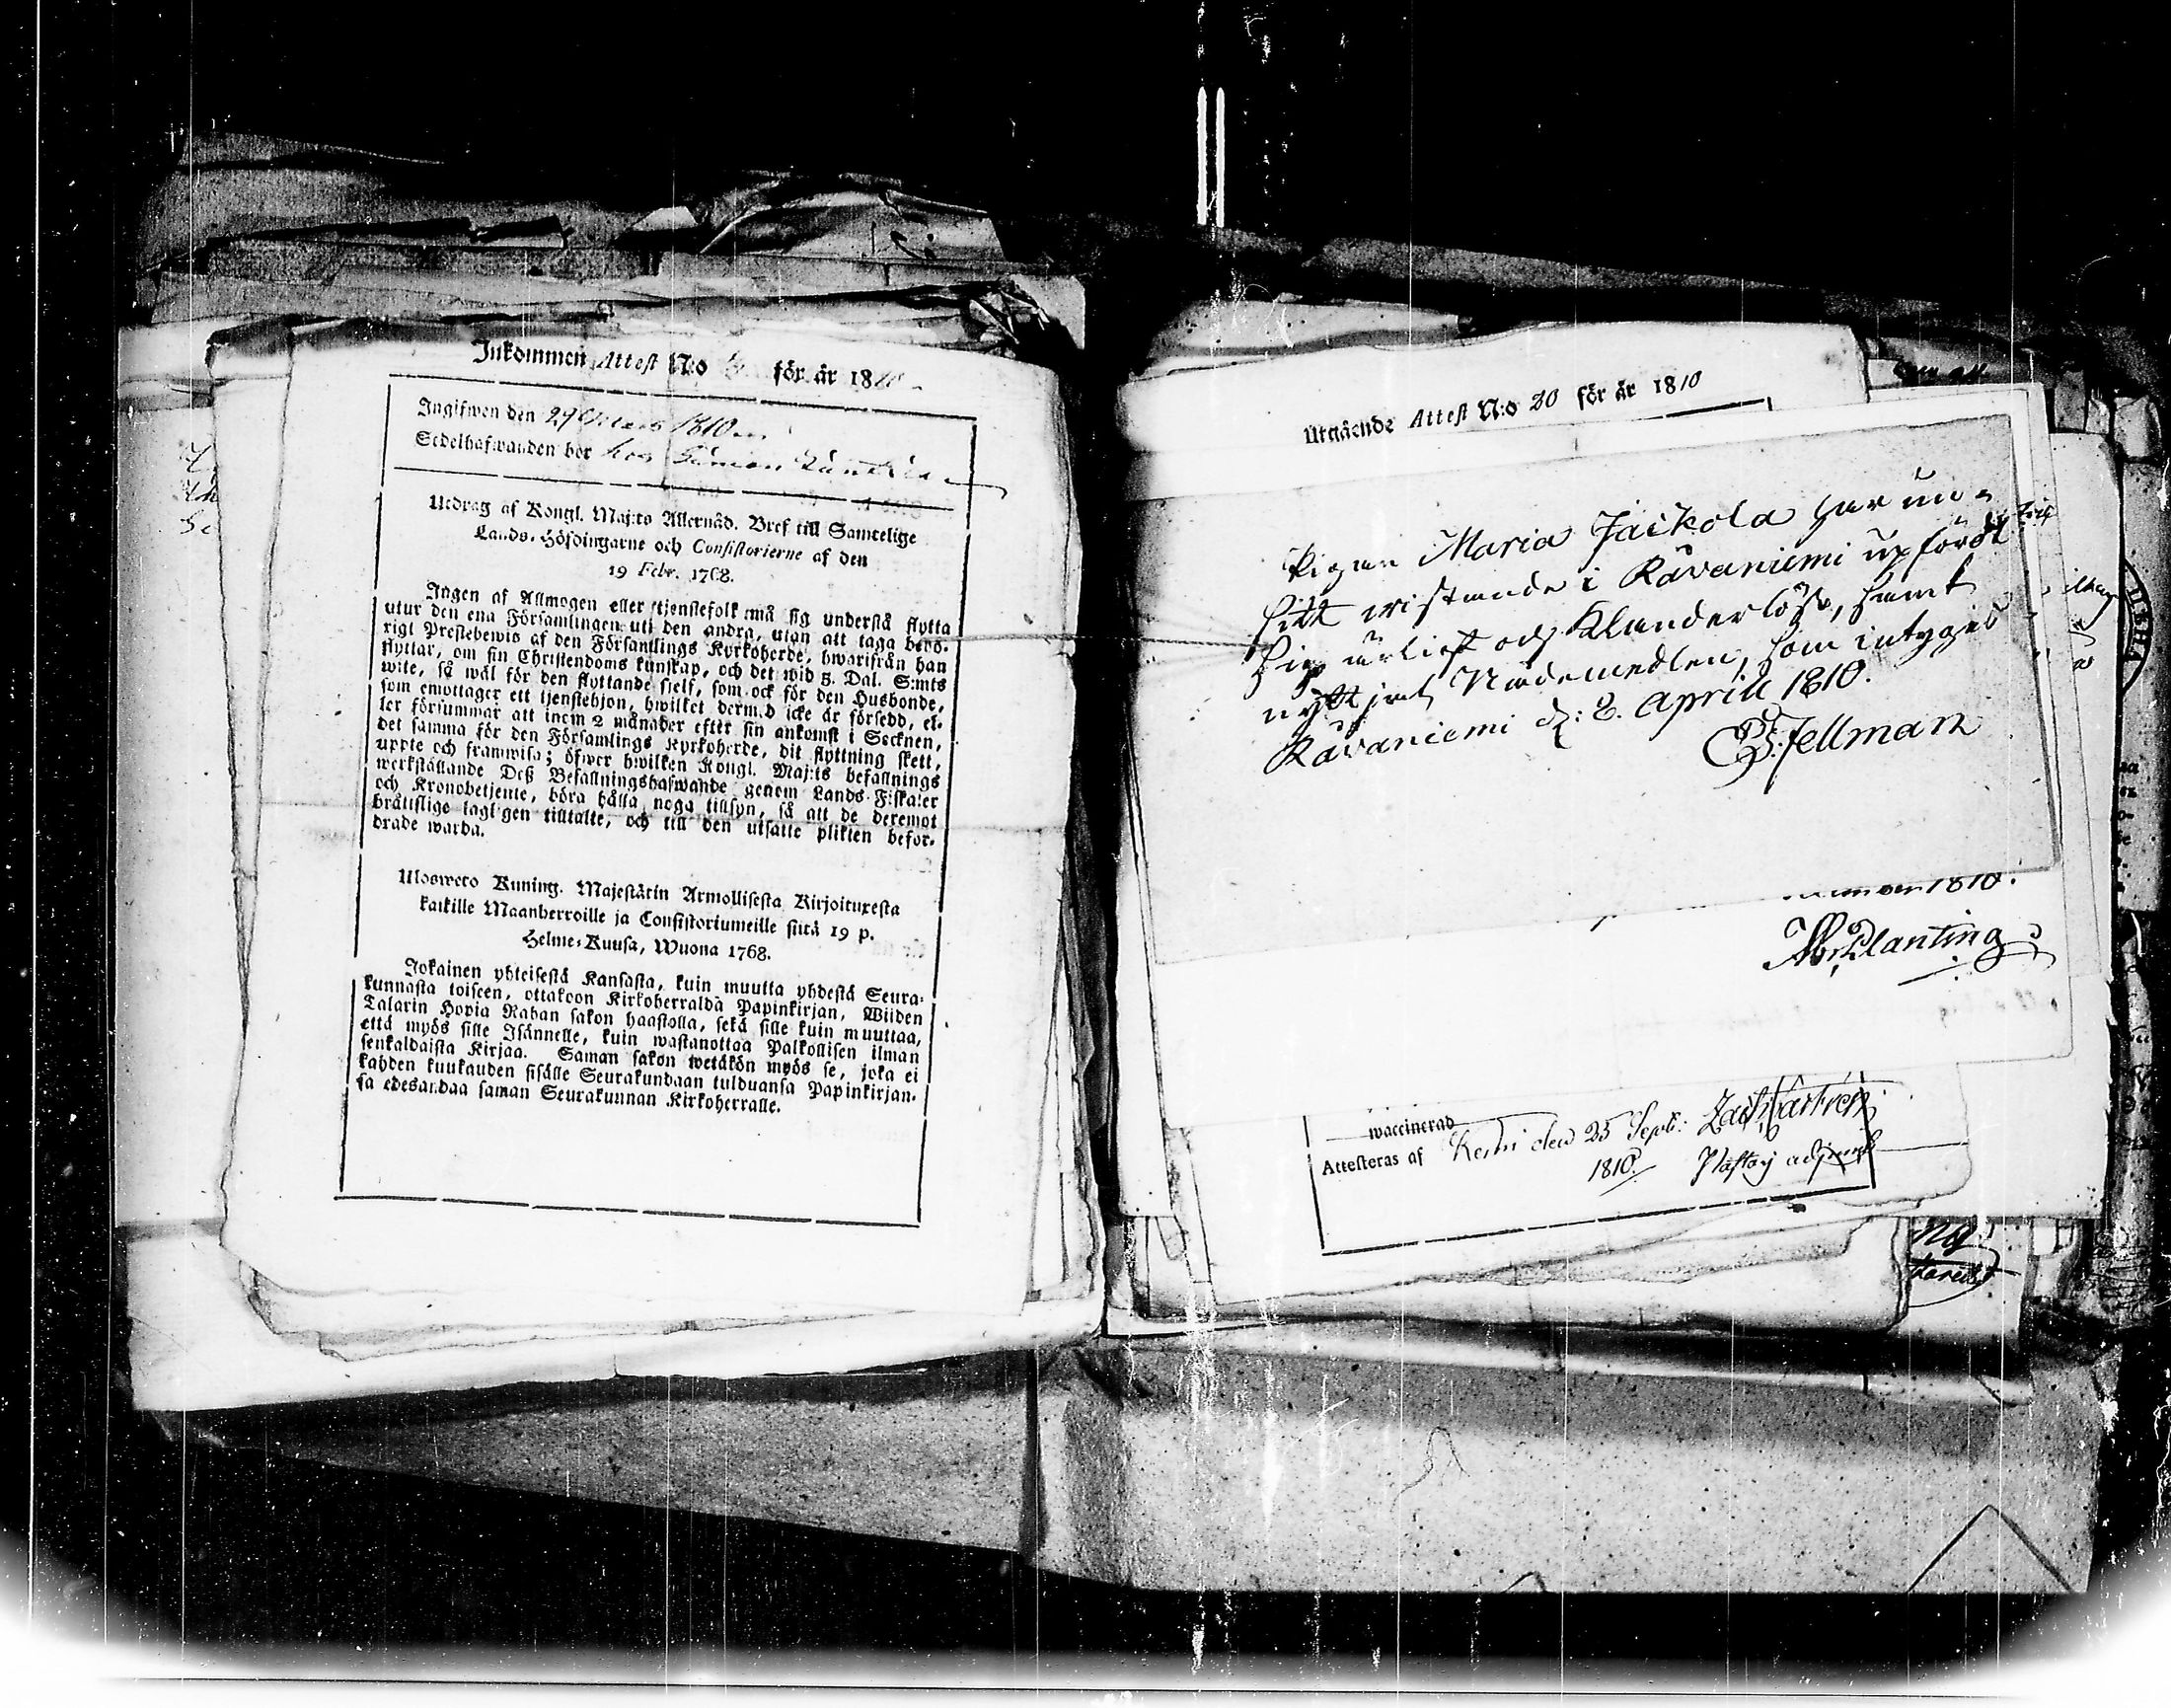 Inkommen Attest N:o för år 18
Ingifwen den 29 Mars 1810
Sedelhafwanden bor hos Simon
Utdrag af Kongl. Maj:ts Allernåd. Bref till Samtelige
Lands-Höfdingarne och Consistorierne af den
19 Febr. 1768.
Ingen af Allmogen eller tjenstefolk må sig understå flytta
utur den ena Församlingen uti den andra, utan att taga behö-
rigt Prestebewis af den Församlings Kyrkoherde, hwarifrån han
flyttar, om sin Christendoms kunskap, och det wid 5. Dal. S:mts
wite, så wäl för den flyttande sielf, som ock för den Husbonde,
som emottager ett tjenstehjon, hwilket dermed icke är försedd, el-
ler försummar att inom 2 månader efter sin ankomst i Socknen,
det samma för den Församlings Kyrkoherde, dit flyttning skett,
uppte och framwisa; öfwer hwilken Kongl. Maj:ts befallnings
werkställande Deß Befallningshafwande genom Lands-Fiskaler
och Kronobetjente, böra hålla noga tillsyn, så att de deremot
bråttslige lagligen tilltalte, och till den utsatte plikten befor-
drade warda.
Ulosweto Kuning. Majestätin Armollisesta Kirjoituxesta
kaikille Maanherroille ja Consistoriumeille siitä 19 p.
Helme-Kuusa, Wuona 1768.
Jokainen yhteisestä Kansasta, kuin muutta yhdestä Seura-
kunnasta toiseen, ottakoon Kirkoherralda Papinkirjan, Wiiden
Talarin Hopia Rahan sakon haastolla, sekä sille kuin muuttaa,
että myös sille Isännelle, kuin wastanottaa Palkollisen ilman
senkaldaista Kirjaa. Saman sakon wetäkön myös se, joka ei
kahden kuukauden sisälle Seurakundaan tulduansa Papinkirjan-
sa edesandaa saman Seurakunnan Kirkoherralle.
Utgående Attest N:o 20 för år 1810
Pigan Maria Jaikola har un-
sitt wistande i Råvaniemi upfördt
sig ärligt och Klanderlöst, samt
nyttjat Nådemedlen, som intygas
Råvaniemi d: 8. Aprill 1810.
Fellman
1810.
Planting
waccinerad
Attesteras af Kemi den 25 Sept: Zach Castren
1810. Pastors adjunct